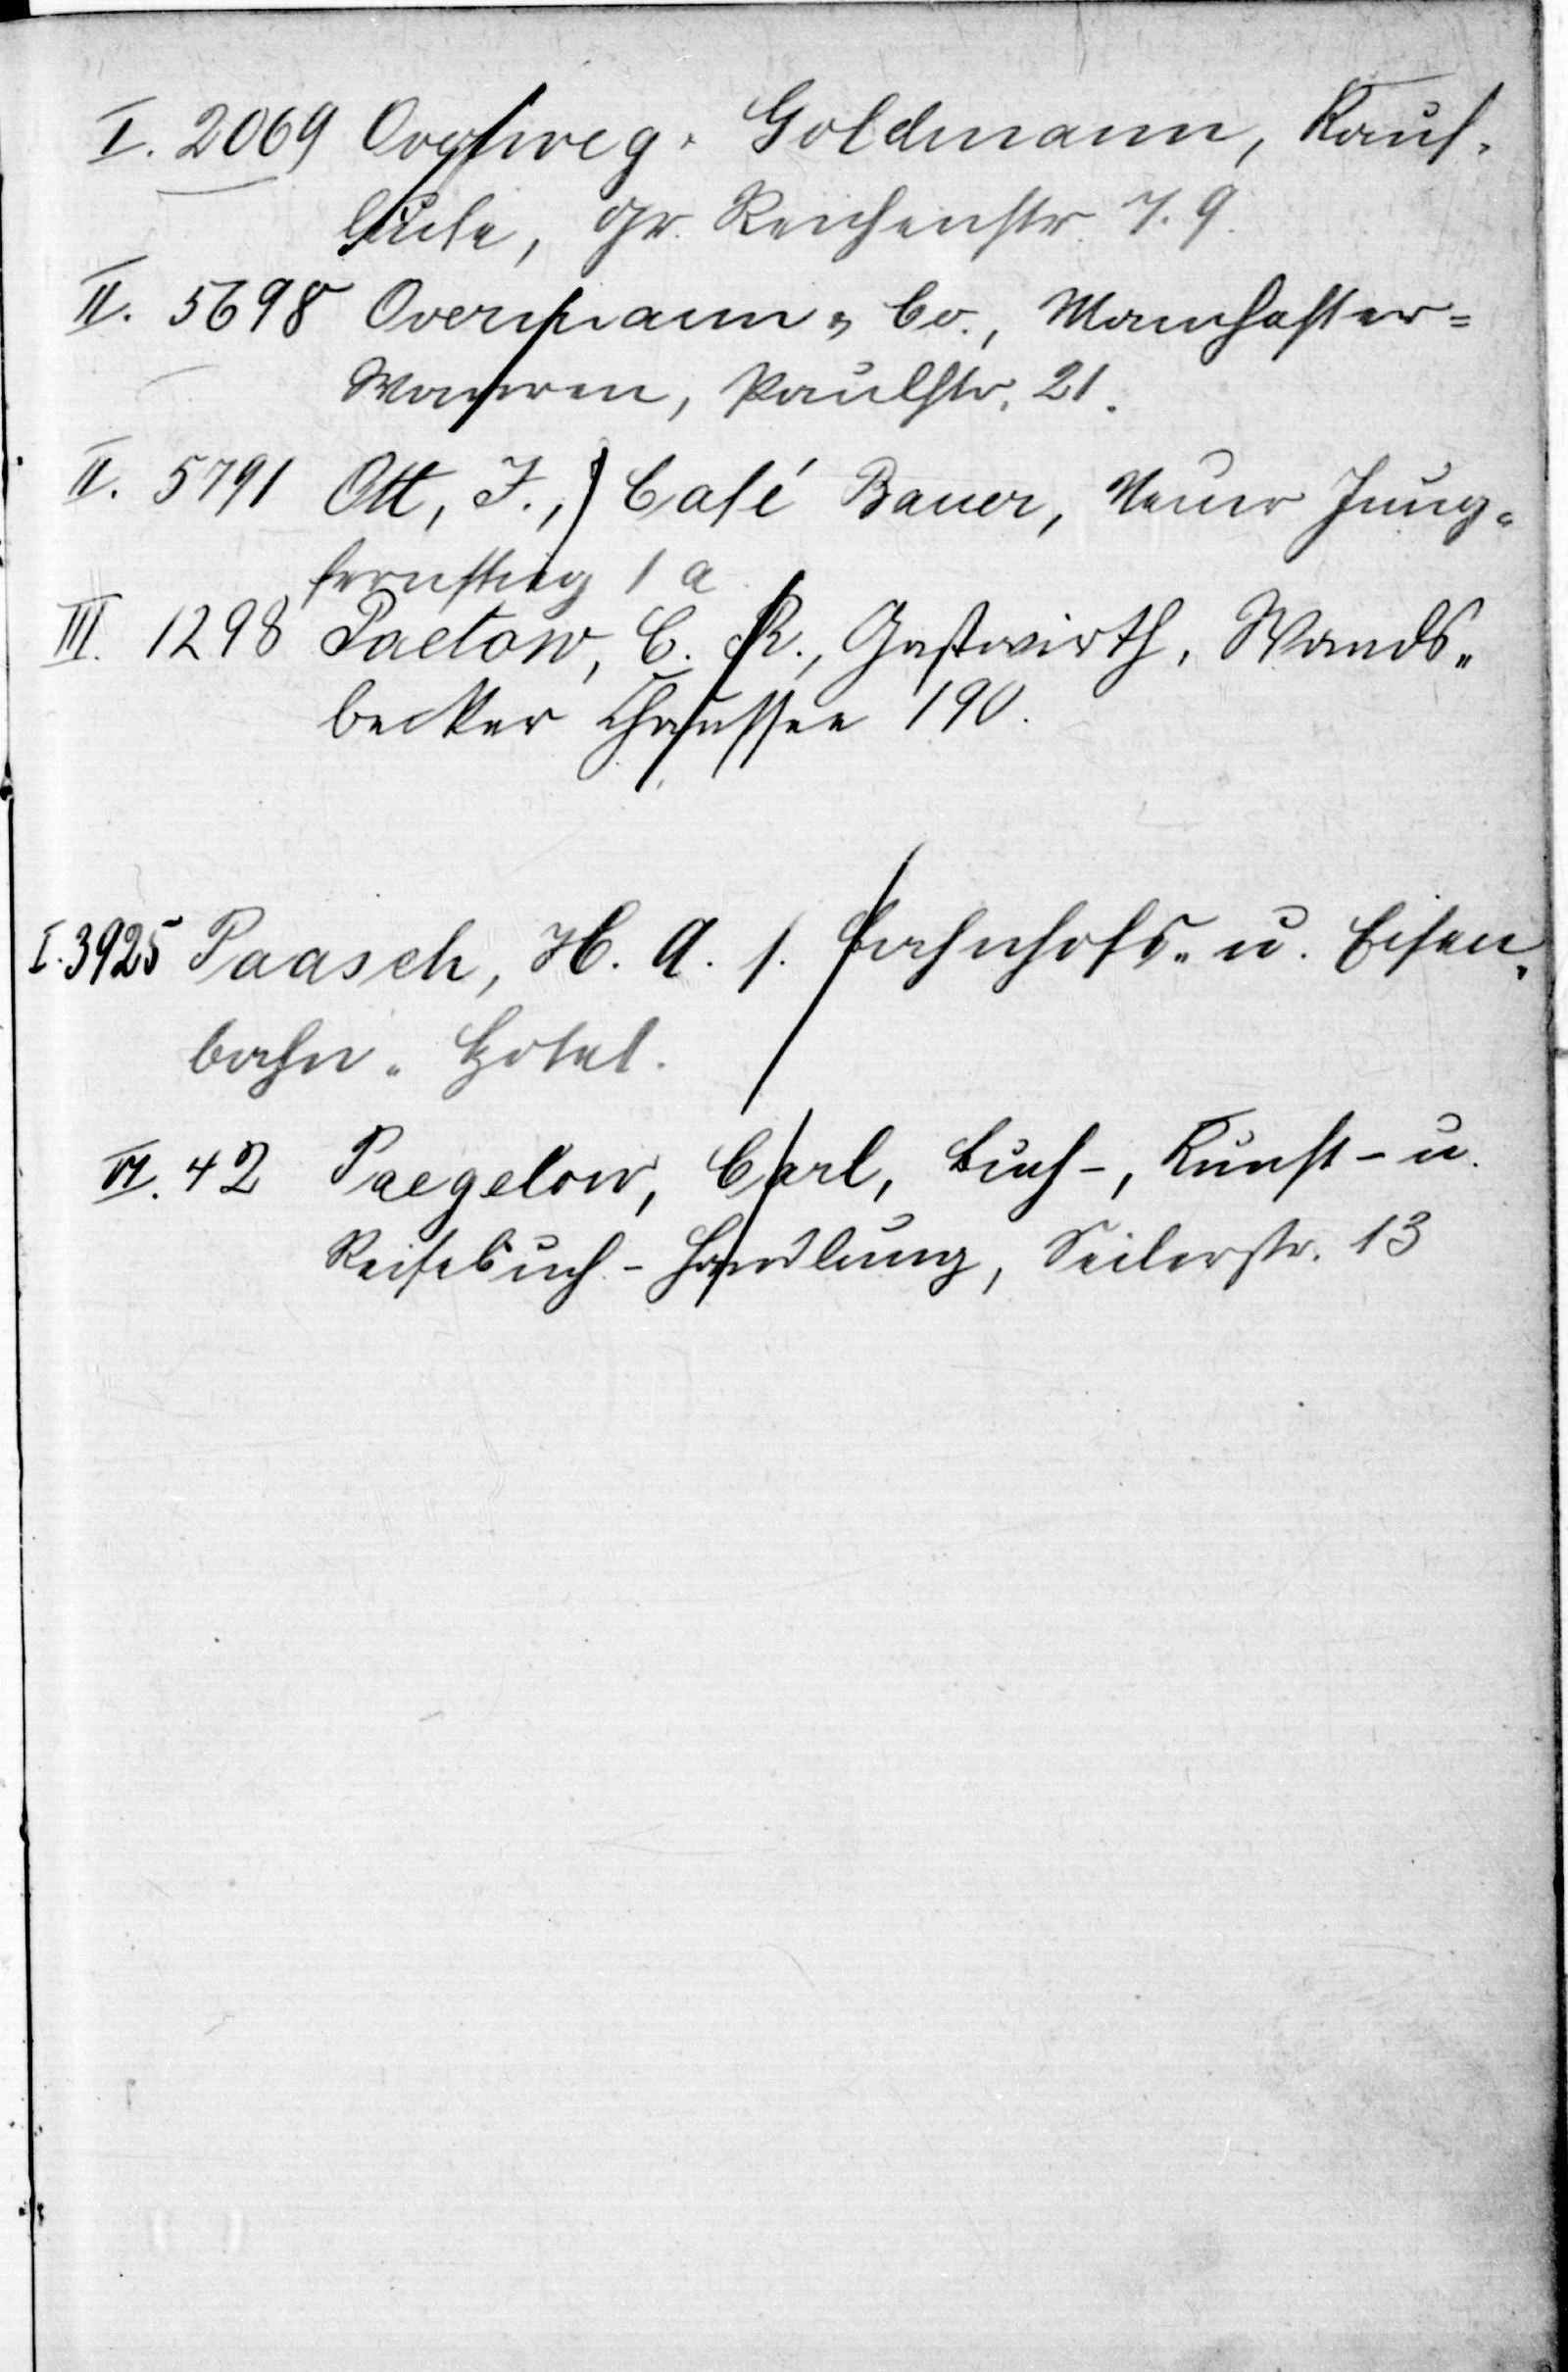 I. 2069 Overweg & Goldmann, Kauf-
leute, gr. Reichenstr. 7. 9.
II. 5698 Overmann & Co., Manchester=
Waaren, Paulstr. 21.
II. 5791 Ott, F., Café Bauer, Neuer Jung-
fernstieg 1 a
III. 1298 Paetow, C. R., Gastwirth, Wands-
becker Chaussee 190.
I. 3925 Paasch, H. A. s. Bahnhofs- u. Eisen-
bahn-Hotel.
VI. 42 Paegelow, Carl, Buch-, Kunst- u.
Reisebuch-Handlung, Seilerstr. 13